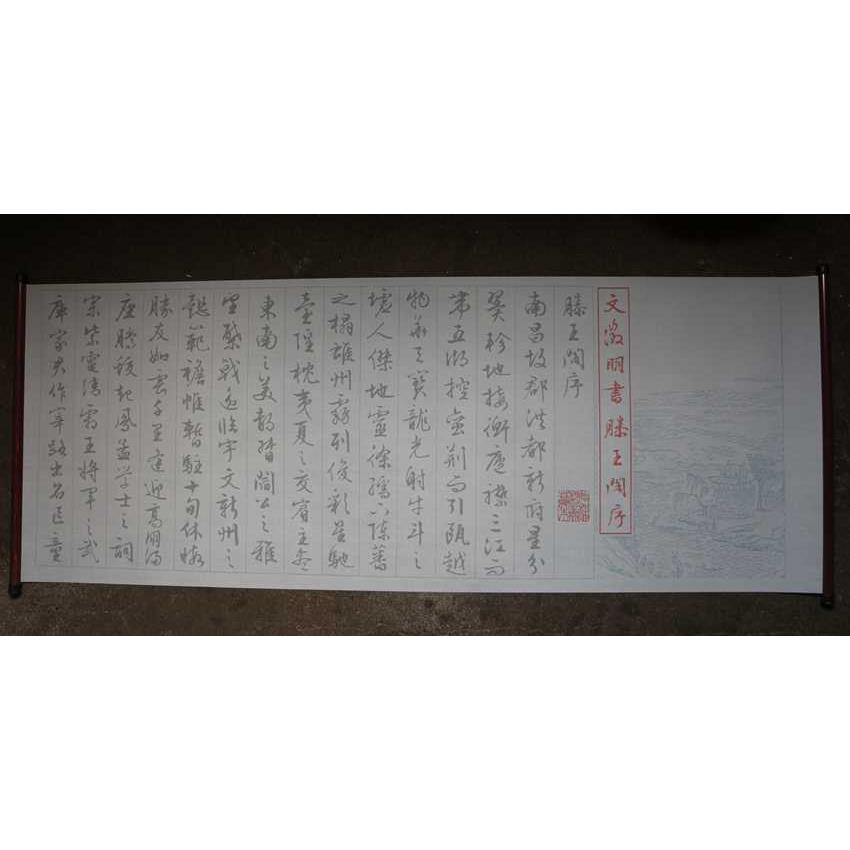 文徵明書滕王閣序
滕王閣序
南昌故郡洪都新府星分
翼軫地接衡廬襟三江而
帶五湖控蠻荊而引甌越
物華天寶龍光射牛斗之
墟人傑地靈徐孺下陳蕃
之榻雄州霧列俊彩星馳
臺隍枕夷夏之交賓主盡
東南之美都督閻公之雅
望棨戟遙臨宇文新州之
懿範襜帷暫駐十旬休暇
勝友如雲千里逢迎高朋滿
座騰蛟起鳳孟學士之詞
宗紫電清霜王將軍之武
庫家君作宰路出名區童